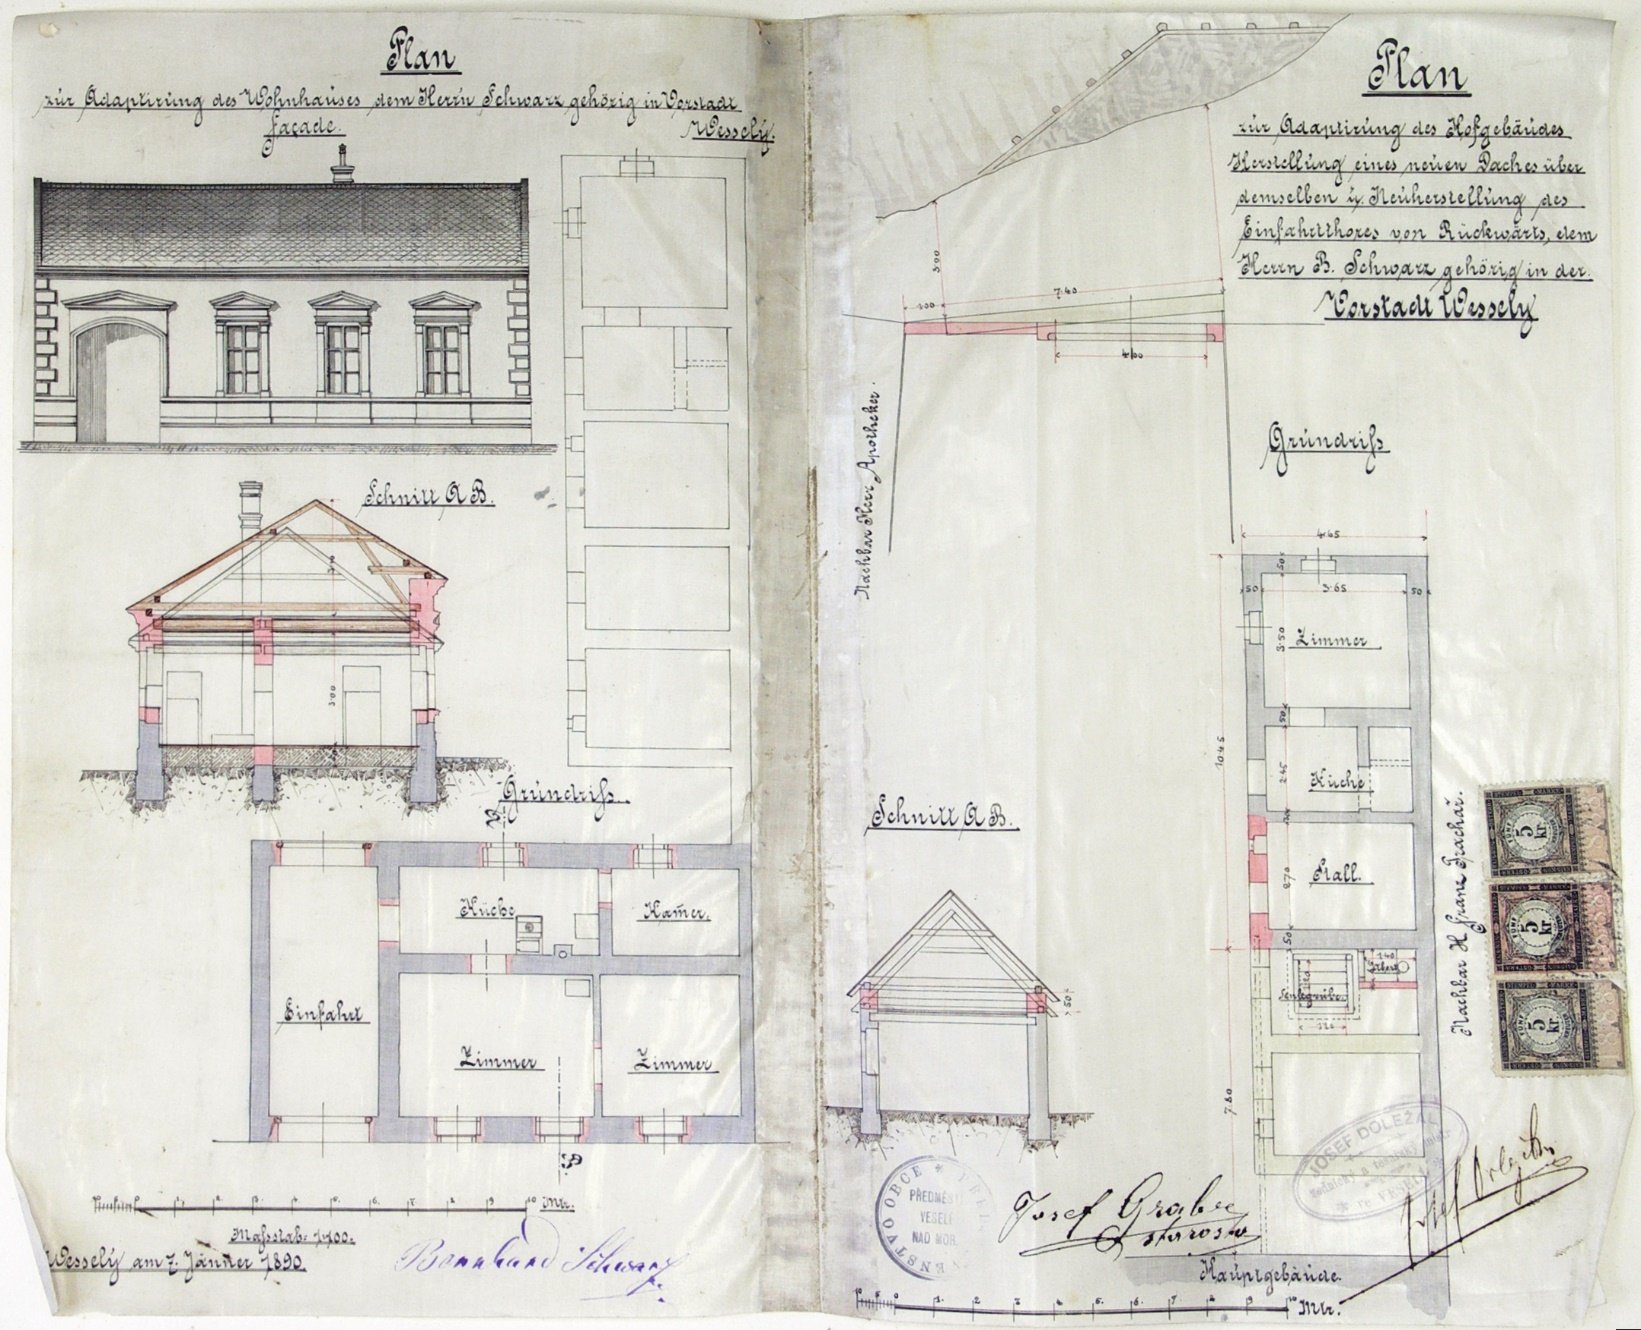 Plan
zur Adaptirung des Wohnhauses dem Herrn Schwarz gehörig in Vorstadt
Wessely.
Façade.
Schnitt A B.
3·00
Grundriſs.
B
Küche
Kam̄er.
Einfahrt
Zimmer
Zimmer
Mtr.
Maſsstab: 1/100.
Wessely am 7. Jänner 1890.
Bernhard Schwarz
Plan
zur Adaptirung des Hofgebäudes
Herstellung eines neuen Daches über
demselben u. Neuherstellung des
Einfahrtthores von Rückwärts, dem
Herrn B. Schwarz gehörig in der
Vorstadt Wessely
3·00
1·00
7·40
4·00
Nachbar Herr Apotheker.
Grundriſs
4·65
50
50
3·65
50
3·50
Zimmer
50
10·45
2·45
Küche
2·70
Stall.
50
1·40
Senkgrube
1·20
7·80
Nachbar H. Franz Prachař.
5
kr
5
kr
5
kr
Schnitt A B.
50
PŘEDMĚSTÍ
VESELÍ
NAD MOR.
OBCE
Josef Grabec
starosta
JOSEF DOLEŽAL
Hauptgebäude.
Mtr.